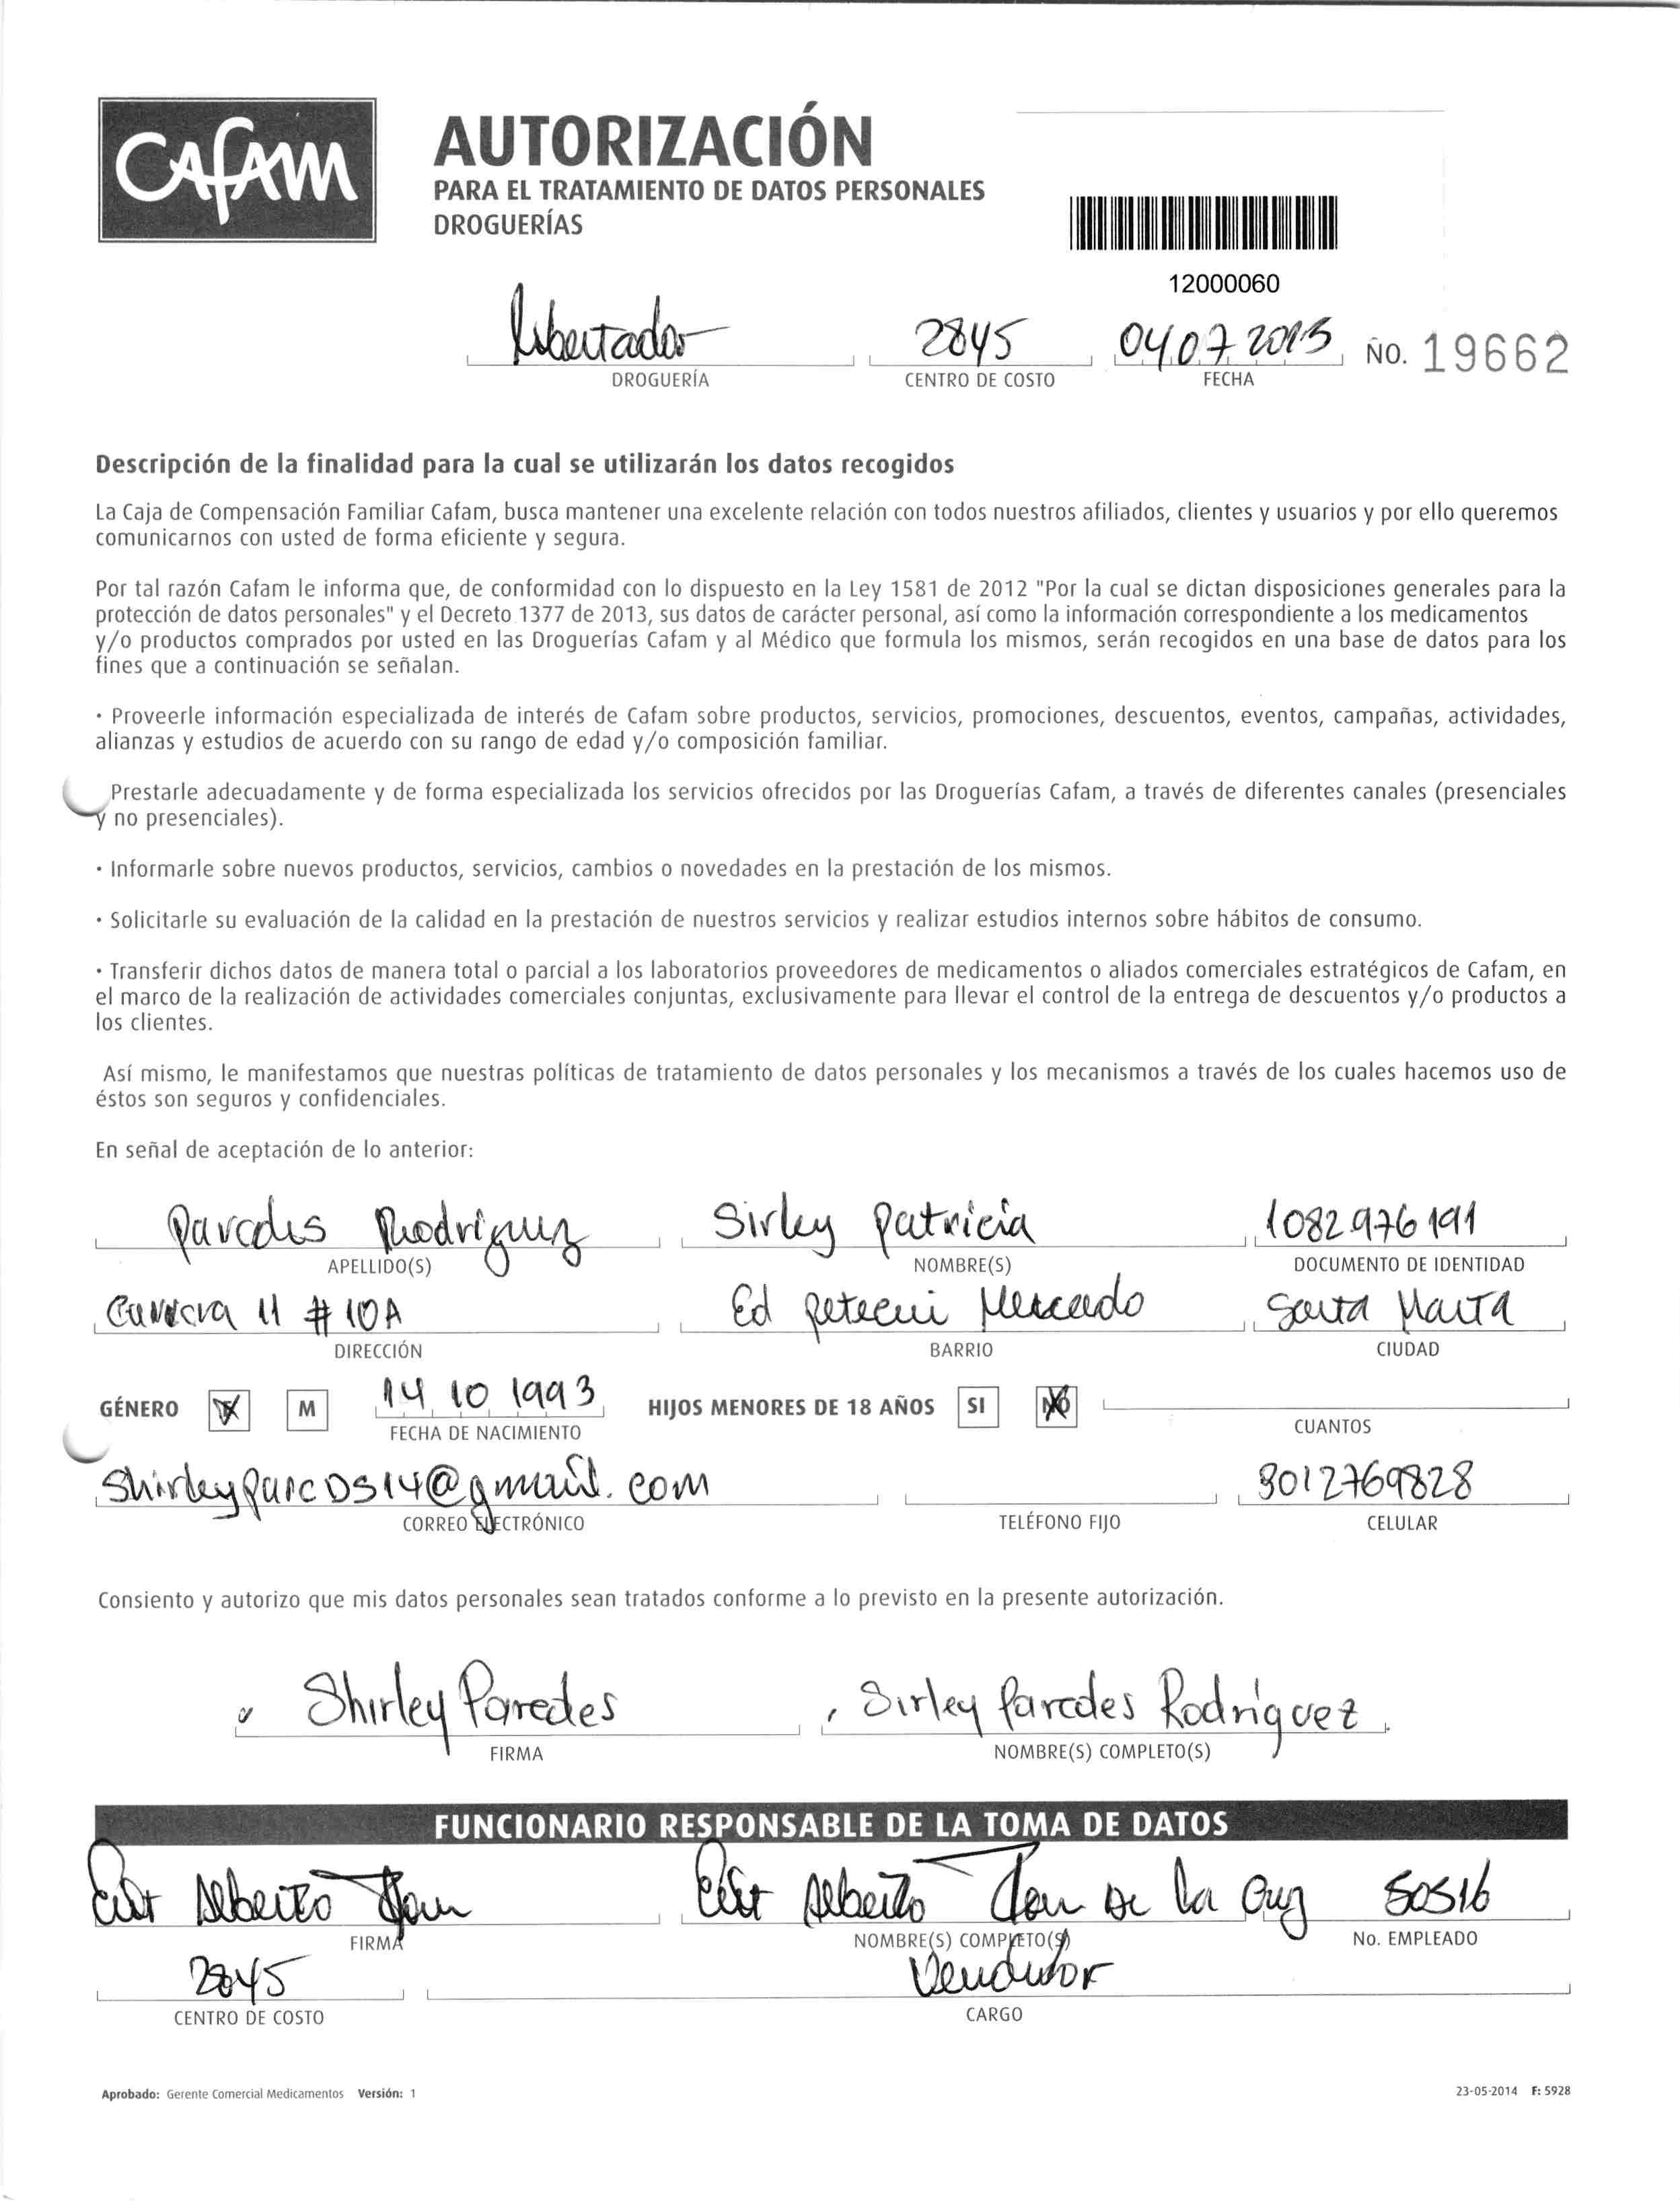 CAFAM
AUTORIZACIÓN
PARA EL TRATAMIENTO DE DATOS PERSONALES
DROGUERÍAS
12000060
Libertador 2845 04 07 2015 No. 19662
DROGUERÍA CENTRO DE COSTO FECHA
Descripción de la finalidad para la cual se utilizarán los datos recogidos
La Caja de Compensación Familiar Cafam, busca mantener una excelente relación con todos nuestros afiliados, clientes y usuarios y por ello queremos
comunicarnos con usted de forma eficiente y segura.
Por tal razón Cafam le informa que, de conformidad con lo dispuesto en la Ley 1581 de 2012 "Por la cual se dictan disposiciones generales para la
protección de datos personales" y el Decreto 1377 de 2013, sus datos de carácter personal, así como la información correspondiente a los medicamentos
y/o productos comprados por usted en las Droguerías Cafam y al Médico que formula los mismos, serán recogidos en una base de datos para los
fines que a continuación se señalan.
· Proveerle información especializada de interés de Cafam sobre productos, servicios, promociones, descuentos, eventos, campañas, actividades,
alianzas y estudios de acuerdo con su rango de edad y/o composición familiar.
Prestarle adecuadamente y de forma especializada los servicios ofrecidos por las Droguerías Cafam, a través de diferentes canales (presenciales
y no presenciales).
· Informarle sobre nuevos productos, servicios, cambios o novedades en la prestación de los mismos.
· Solicitarle su evaluación de la calidad en la prestación de nuestros servicios y realizar estudios internos sobre hábitos de consumo.
· Transferir dichos datos de manera total o parcial a los laboratorios proveedores de medicamentos o aliados comerciales estratégicos de Cafam, en
el marco de la realización de actividades comerciales conjuntas, exclusivamente para llevar el control de la entrega de descuentos y/o productos a
los clientes.
Así mismo, le manifestamos que nuestras políticas de tratamiento de datos personales y los mecanismos a través de los cuales hacemos uso de
éstos son seguros y confidenciales.
En señal de aceptación de lo anterior:
Paredes Rodriguez Sirley Patricia 1082976191
APELLIDO(S) NOMBRE(S) DOCUMENTO DE IDENTIDAD
Carrera 11 # 10A Ed Mercado Santa Marta
DIRECCIÓN BARRIO CIUDAD
GÉNERO F M 14 10 1993 HIJOS MENORES DE 18 AÑOS SI NO
FECHA DE NACIMIENTO CUANTOS
@gmail.com 3012769828
CORREO ELECTRÓNICO TELÉFONO FIJO CELULAR
Consiento y autorizo que mis datos personales sean tratados conforme a lo previsto en la presente autorización.
Shirley Paredes Sirley Paredes Rodriguez
FIRMA NOMBRE(S) COMPLETO(S)
FUNCIONARIO RESPONSABLE DE LA TOMA DE DATOS
Alberto Alberto De la Cruz 50516
FIRMA NOMBRE(S) COMPLETO(S) No. EMPLEADO
2845 Vendedor
CENTRO DE COSTO CARGO
Aprobado: Gerente Comercial Medicamentos Versión: 1 23-05-2014 F: 5928